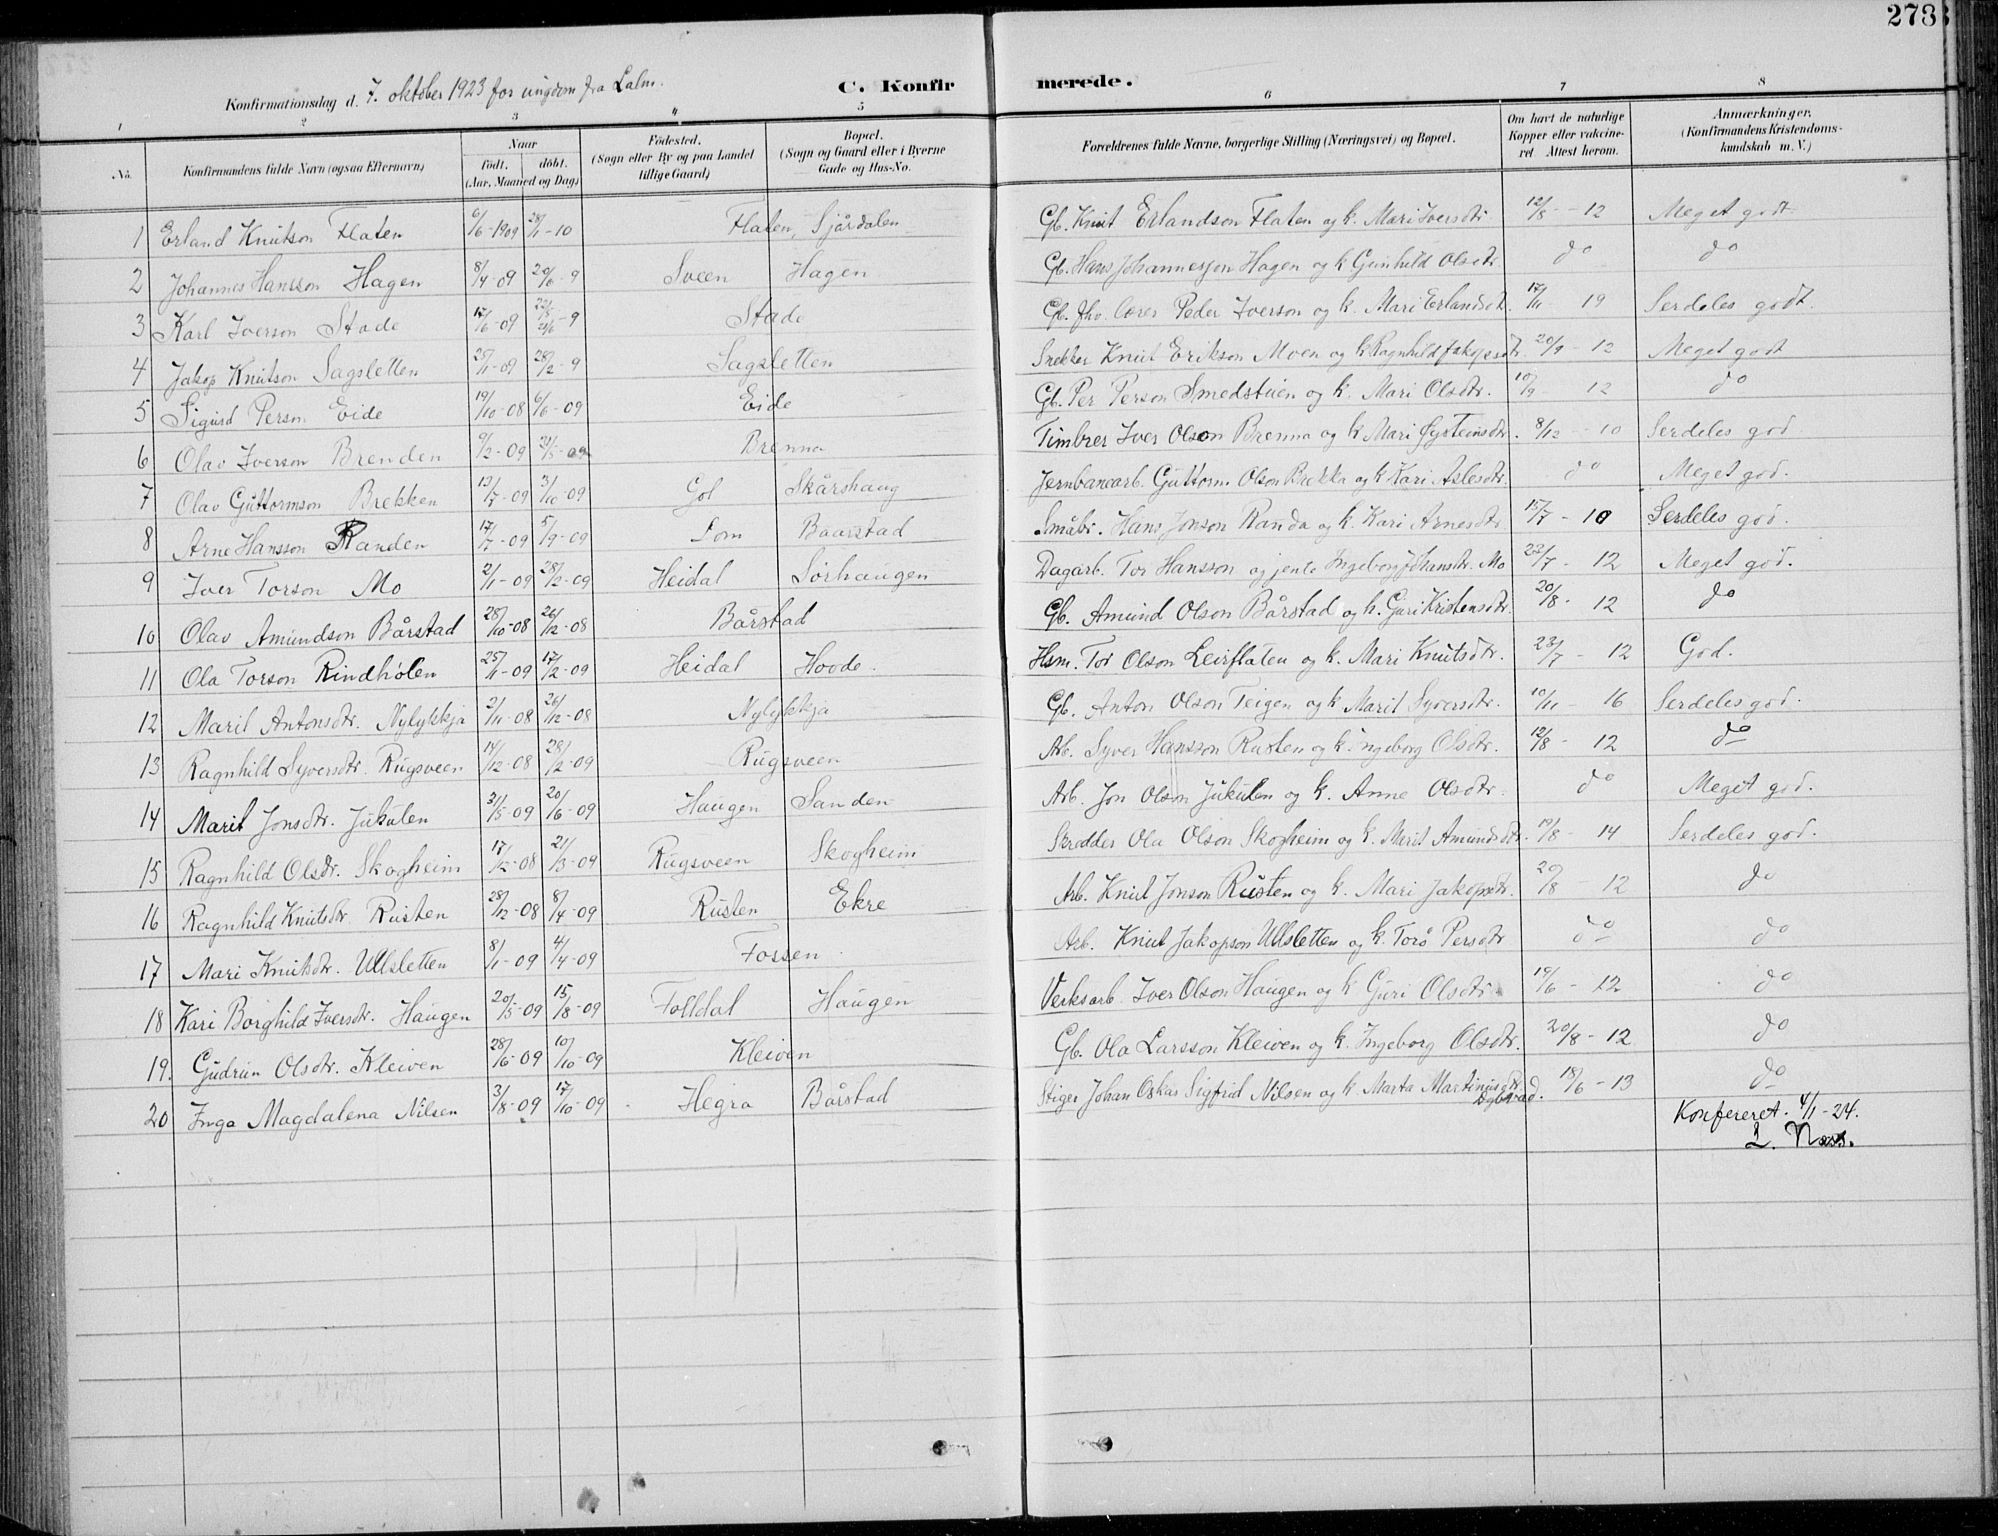 273
Konfirmationsdag d. 7. oktober 1923 for ungdom fra Lalm.
C. Konfirmerede.
1 2 3 4 5 6 7 8
No. Konfirmandens fulde Navn (ogsaa Efternavn) Naar født. døbt. (Aar, Maaned og Dag) Fødested. (Sogn eller By og paa Landet tillige Gaard) Bopæl. (Sogn og Gaard eller i Byerne Gade og Hus-No. Forældrenes fulde Navne, borgerlige Stilling (Næringsvei) og Bopæl. Om havt de naturlige Kopper eller vakcineret Attest herom. Anmærkninger. (Konfirmandens Kristendomskundskab m. V.)
1 Erland Knutson Flaten 6/6-1909 28/1-10 Flaten, Sjårdalen Gb. Knut Erlandson Flaten og k. Mari Iversdtr 12/8-12 Meget godt
2 Johannes Hansson Hagen 8/4-09 20/6-9 Sveen Hagen Gb. Hans Johannesson Hagen og k Gunhild Olsdtr do do
3 Karl Iverson Stade 17/6-09 Stade Gb. Iver Peder Iverson og k. Mari Erlandsdt. 17/11-19 Serdeles godt.
4 Jakop Knutson Sagsletten 25/1-09 28/2-9 Sagsletten Snekker Knut Erikson Moen og k Ragnhild Jakopsdtr. 20/9-12 Meget godt
5 Sigurd Person Eide 19/10-08 6/6-09 Eide Gb. Per Person Smedstuen og k. Mari Olsdtr. 10/9-12 do
6 Olav Iverson Brenden 9/2-09 31/5-09 Brenna Timbrer Iver Olson Brenna og k Mari Øysteinsdtr. 8/12-10 Serdeles god
7 Olav Guttormson Brekken 13/7-09 3/10-09 Gol Skårshaug Jernbanearb. Guttorm Olson Brekka og k Kari Aslesdtr. do Meget god.
8 Arne Hansson Randen 17/7-09 5/9-09 Lom Baarstad Småbr. Hans Jonson Randa og k. Kari Arnesdtr 15/7-10 Serdeles god.
9 Iver Torson Mo 2/1-09 28/2-09 Heidal Sørhaugen Dagarb. Tor Hansson og jente Ingeborg Johansdtr. Mo 22/7-12 Meget god.
10 Olav Amundson Bårstad 28/10-08 26/12-08 Bårstad Gb. Amund Olson Bårstad og k. Guri Kristensdtr. 20/8-12 do
11 Ola Torson Rindhølen 25/1-09 17/2-09 Heidal Hovde. Hsm. Tor Olson Leirflaten og k. Mari Knutsdtr. 23/7-12 God.
12 Marit Antonsdtr. Nylykkja 2/11-08 26/12-08 Nylykkja Gb. Anton Olson Teigen og k Marit Syversdtr. 10/11-16 Serdeles god.
13 Ragnhild Syversdtr. Rugsveen 14/12-08 28/2-09 Rugsveen Arb. Syver Hansson Rusten og k. Ingeborg Olsdtr. 12/8-12 do
14 Marit Jonsdtr. Jukulen 31/5-09 20/6-09 Haugen Sanden Arb. Jon Olson Jukulen og k. Anne Olsdtr. do Meget god.
15 Ragnhild Olsdtr. Skogheim 17/12-08 21/3-09 Rugsveen Skogheim Skrædder Ola Olson Skogheim og k. Marit Amundsdtr. 19/8-14 Serdeles god.
16 Ragnhild Knutsdtr. Rusten 28/12-08 8/4-09 Rusten Ekre Arb. Knut Jonson Rusten og k. Mari Jakopsdtr. 20/8-12 do
17 Mari Knutsdtr. Ullsletten 8/1-09 4/4-09 Fossen. Arb. Knut Jakopson Ullsletten og k. Torø Persdtr do do
18 Kari Borghild Iversdtr. Haugen 20/5-09 15/8-09 Folldal Haugen Verksarb. Iver Olson Haugen og k Guri Olsdtr. 19/6-12 do
19. Gudrun Olsdtr. Kleiven 28/6-09 10/10-09 Kleiven Gb. Ola Larsson Kleiven og k. Ingeborg Olsdtr. 20/8-12 do
20 Inga Magdalena Nilsen 3/8-09 17/10-09 Hegra Bårstad Stiger Johan Oskar Sigfrid Nilsen og k Marta Martinusdtr. 18/6-13 do
Konfereret. 4/1-24.
L. Næss.